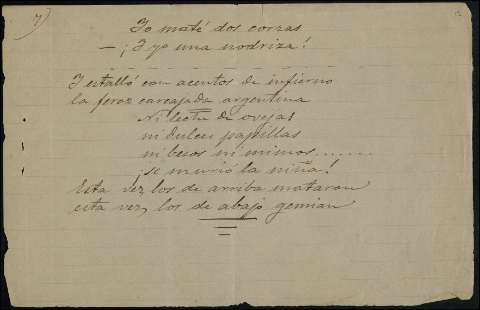 7)
Yo maté dos corzas
— ¡Y yo una nodriza!
Y estalló con acentos de infierno
la feroz carcajada argentina
Ni leche de ovejas
ni dulces papillas
ni besos ni mimos......
¡se murió la niña!
Esta vez los de arriba mataron
esta vez, los de abajo gemian